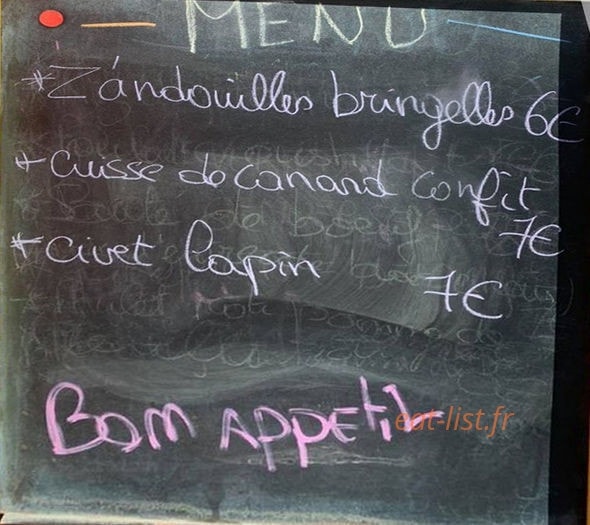 MENU
* Z'andouilles bringelles 6€
+ cuisse de canard confit
7€
* civet lapin
7€
Bom APPEtit
eat-list.fr